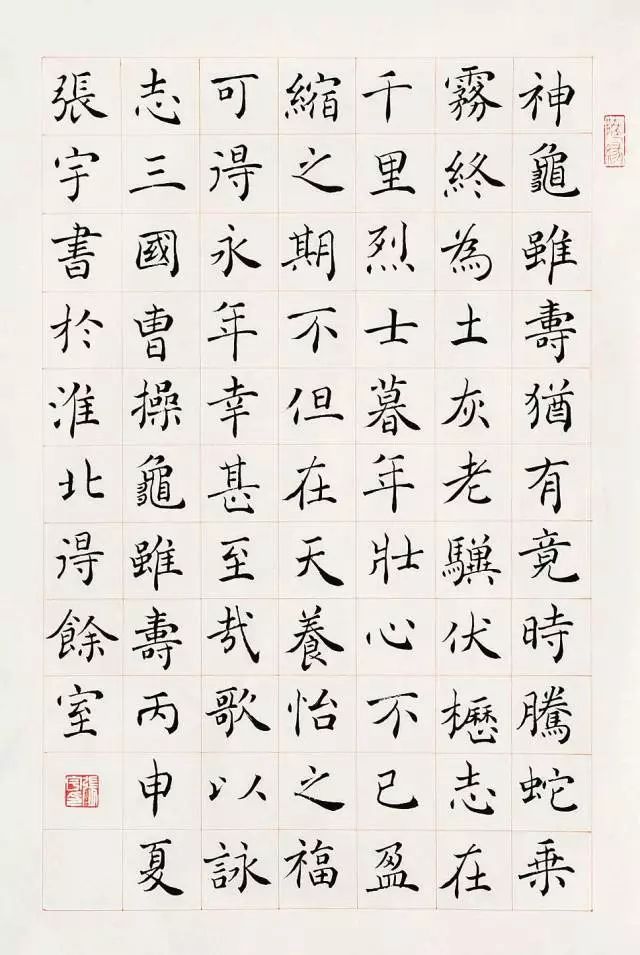 神龜雖壽猶有竟時騰蛇乗
霧終為土灰老驥伏櫪志在
千里烈士暮年壯心不已盈
縮之期不但在天養怡之福
可得永年幸甚至哉歌以詠
志三國曹操龜雖壽丙申夏
張宇書於淮北得餘室